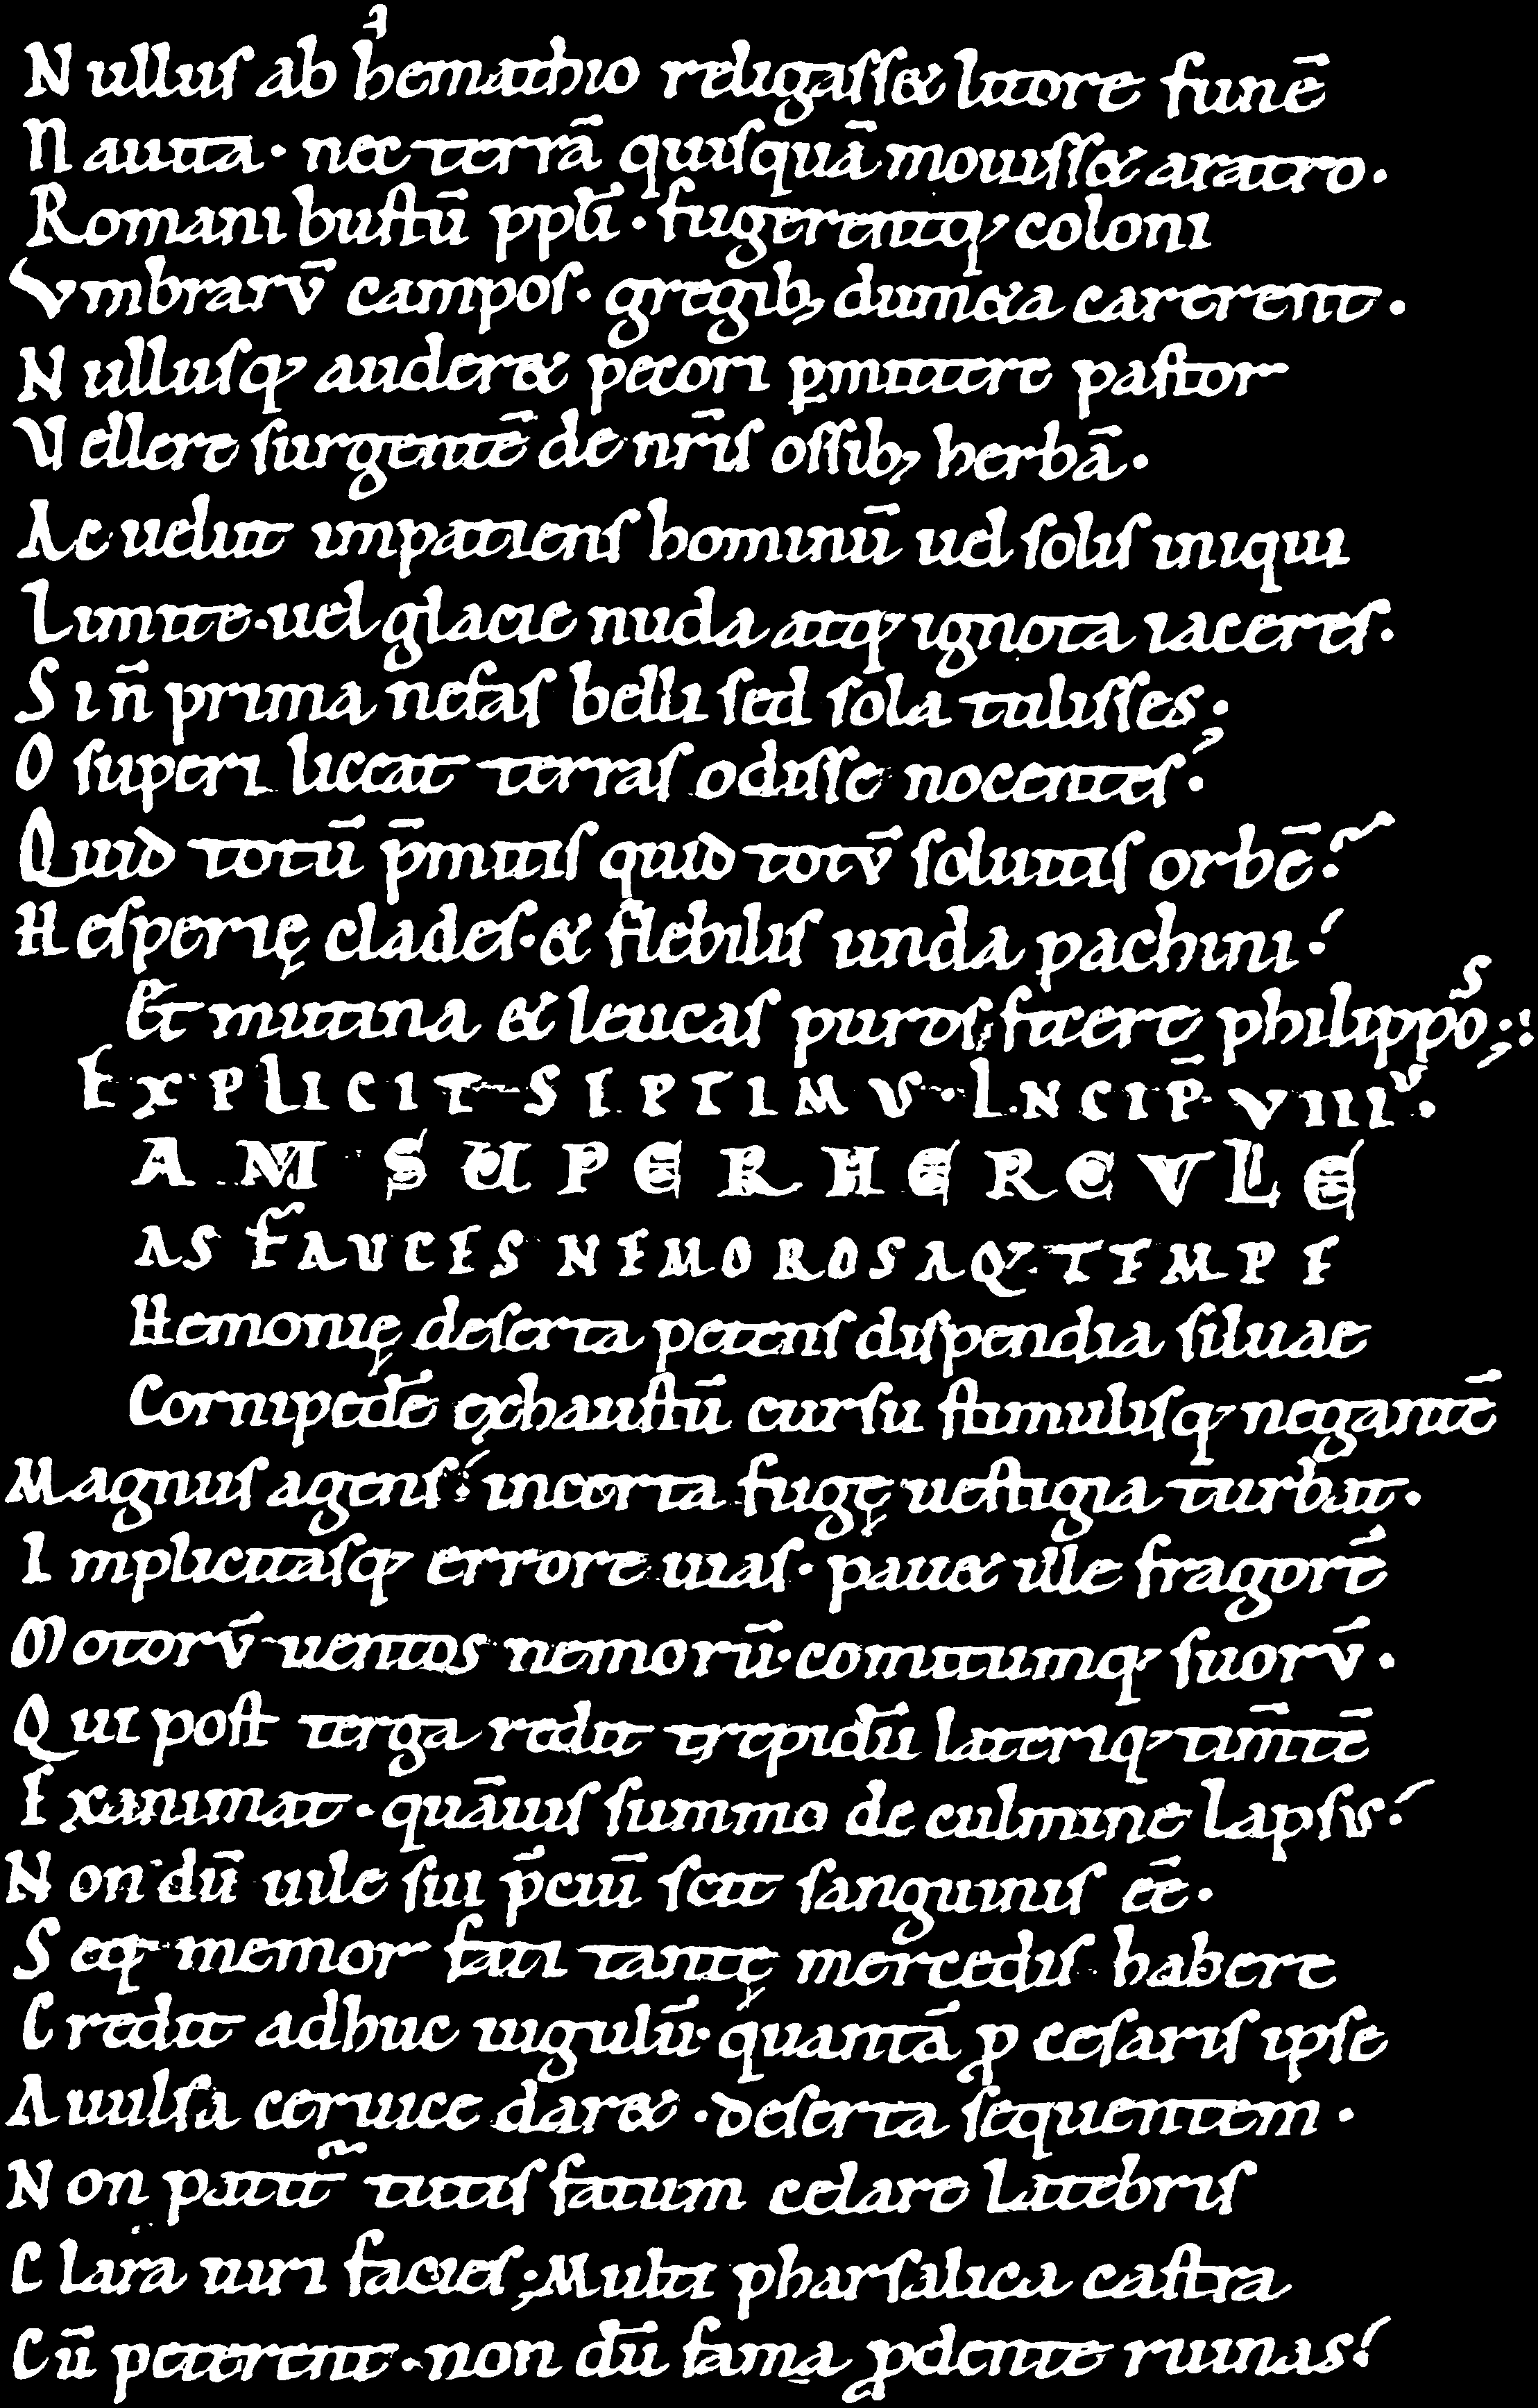 Nullus ab hemathio religasset litore funē
Nauita· nec terrā quisquā mouisset aratro·
Romani bustū ppl̄i· fugerentq; coloni
Vmbrarv̄ campos· gregib; dum &a carerent·
Nullusq; auder& pecori ꝑmittere pastor
Vellere surgentē de nr̄is ossib; herbā·
Ac uelut impatiens hominū uel solis iniqui
Limite· uel glacie nuda atq; ignota iaceres·
Si n̄ prima nefas belli sed sola tulisses;
O superi liceat terras odisse nocentes·
Quid totū p̄mitis quid totv̄ soluitis orbē?
Hesperię clades· & flebilis unda pachini·
Et mutina & leucas puros fecere philippos;
EXPLICIT SEPTIMVS· INCIP̄ VIIIvs·
AM SUPER HERCVLE
AS FAUCES NEMOROSAQ; TEMPE
Hemonię deserta petens dispendia siluae
Cornipedē exhaustū cursu stimulisq; negantē
Magnus agens· incerta fugę uestigia turbat·
Implicitasq; errore uias· pauet ille fragorē
Motorv̄ uentos nemorū· comitumq; suorv̄·
Qui post terga redit trepidū lateriq; tim̄tē
Exanimat· quāuis summo de culmine lapsus·
Nondū uile sui p̄ciū scit sanguinis eē·
Seq; memor fati tantę mercedis habere
Credit adhuc iugulū· quantā ꝓ cesaris ipse
Auulsa ceruice daret· deserta sequentem·
Non patit̃ tutis fatum celare latebris
Clara uiri facies; Multi pharsalica castra
Cū peterent· non dū fama ꝓdente ruinas·